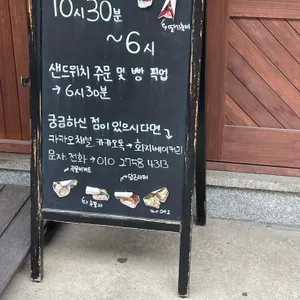 10시30분
~6시
샌드위치 주문 및 빵 픽업
→ 6시30분
궁금하신 점이 있으시다면
카카오채널, 카카오톡 → 화지베이커리
문자, 전화 → 010 2758 4313